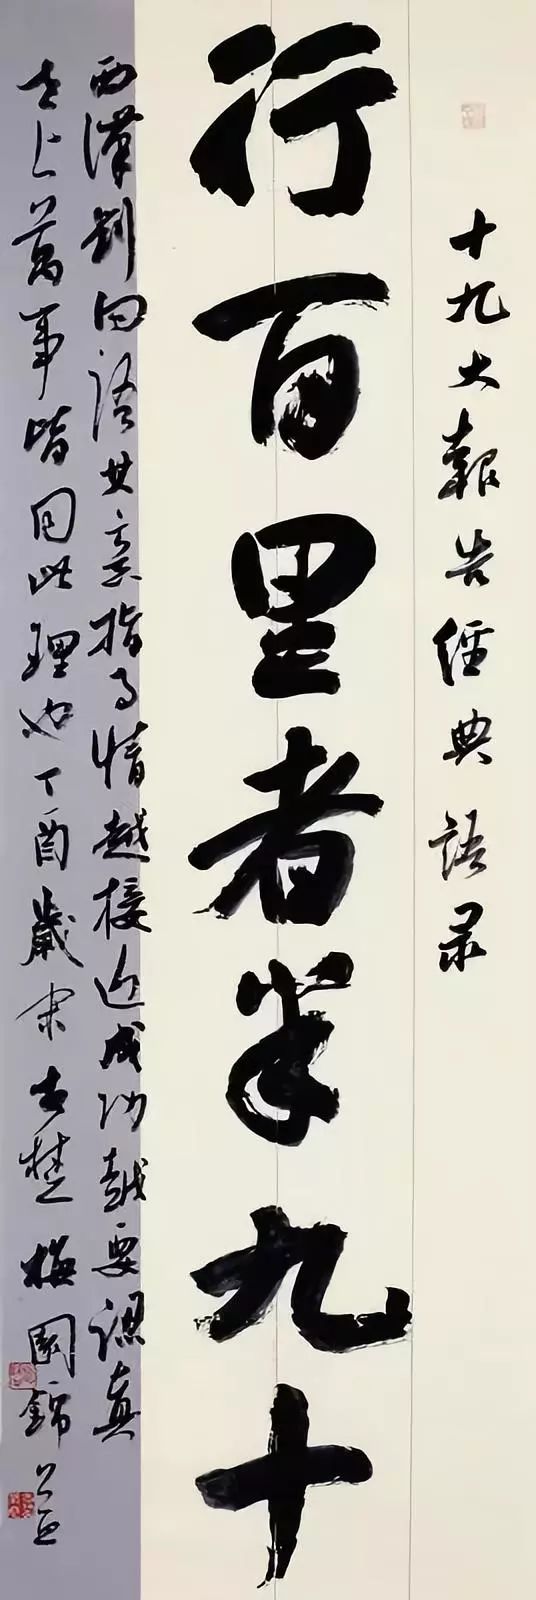 十九大報告經典語录
行百里者半九十
西漢劉向語其意指事情越接近成功越要認真
世上萬事皆同此理也丁酉歲古楚梅國錦